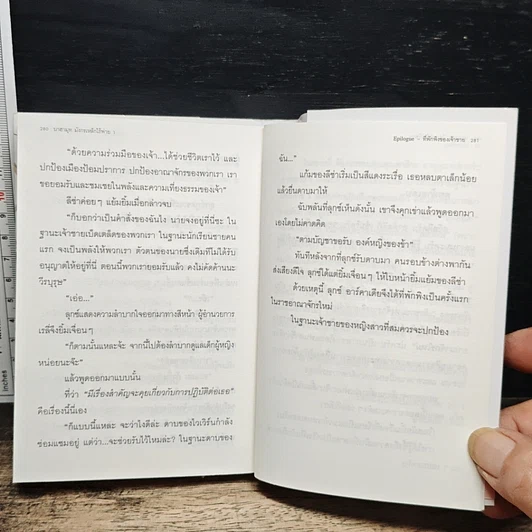 "ด้วยความร่วมมือของเจ้า...ได้ช่วยชีวิตเราไว้ และ
ปกป้องเมืองป้อมปราการ ปกป้องอาณาจักรของพวกเรา เรา
ขอยอมรับและชมเชยในพลังและความเที่ยงธรรมของเจ้า"
ลีซ่าค่อยๆ แย้มยิ้มเมื่อกล่าวจบ
"ก็บอกว่าเป็นคำสั่งของฉันไง นายจงอยู่ที่นี่ซะ ใน
ฐานะเจ้าชายเป็ดเตล็ดของพวกเรา ในฐานะนักเรียนชายคน
แรก จงเป็นพลังให้พวกเรา ตัวตนของนายซึ่งเดิมทีไม่ได้รับ
อนุญาตให้อยู่ที่นี่ ตอนนี้พวกเรายอมรับแล้ว คงไม่คัดค้านนะ
วีรบุรุษ"
"เอ่อ..."
ลุกซ์แสดงความลำบากใจออกมาทางสีหน้า ผู้อำนวยการ
เรลี่จึงยิ้มเจื่อนๆ
"ก็ตามนั้นแหละจ้ะ จากนี้ไปต้องลำบากดูแลเด็กผู้หญิง
หน่อยนะจ๊ะ"
แล้วพูดออกมาแบบนั้น
ที่ว่า "มีเรื่องสำคัญจะคุยเกี่ยวกับการปฏิบัติต่อเธอ"
คือเรื่องนี้นี่เอง
"ก็แบบนี้แหละ จะว่าไงดีล่ะ ดาบของไวเวิร์นกำลัง
ซ่อมแซมอยู่ แต่ว่า...จะช่วยรับไว้ไหมล่ะ? ในฐานะดาบของ
Epilogue - ที่พักพิงของเจ้าชาย 287
ฉัน..."
แก้มของลีซ่าเริ่มเป็นสีแดงระเรื่อ เธอหลบตาเล็กน้อย
แล้วยื่นดาบมาให้
ฉับพลันที่ลุกซ์เห็นดังนั้น เขาจึงคุกเข่าแล้วพูดออกมา
เองโดยไม่คาดคิด
"ตามบัญชาขอรับ องค์หญิงของข้า"
ทันทีหลังจากที่ลุกซ์รับดาบมา คนรอบข้างต่างพากัน
ส่งเสียงดีใจ ลุกซ์ได้แต่ยิ้มเจื่อนๆ ให้ใบหน้ายิ้มแย้มของลีซ่า
ด้วยเหตุนี้ ลุกซ์ อาร์คาเดียจึงได้ที่พักพิงเป็นครั้งแรก
ในราชอาณาจักรใหม่
ในฐานะเจ้าชายของหญิงสาวที่สมควรจะปกป้อง
inches